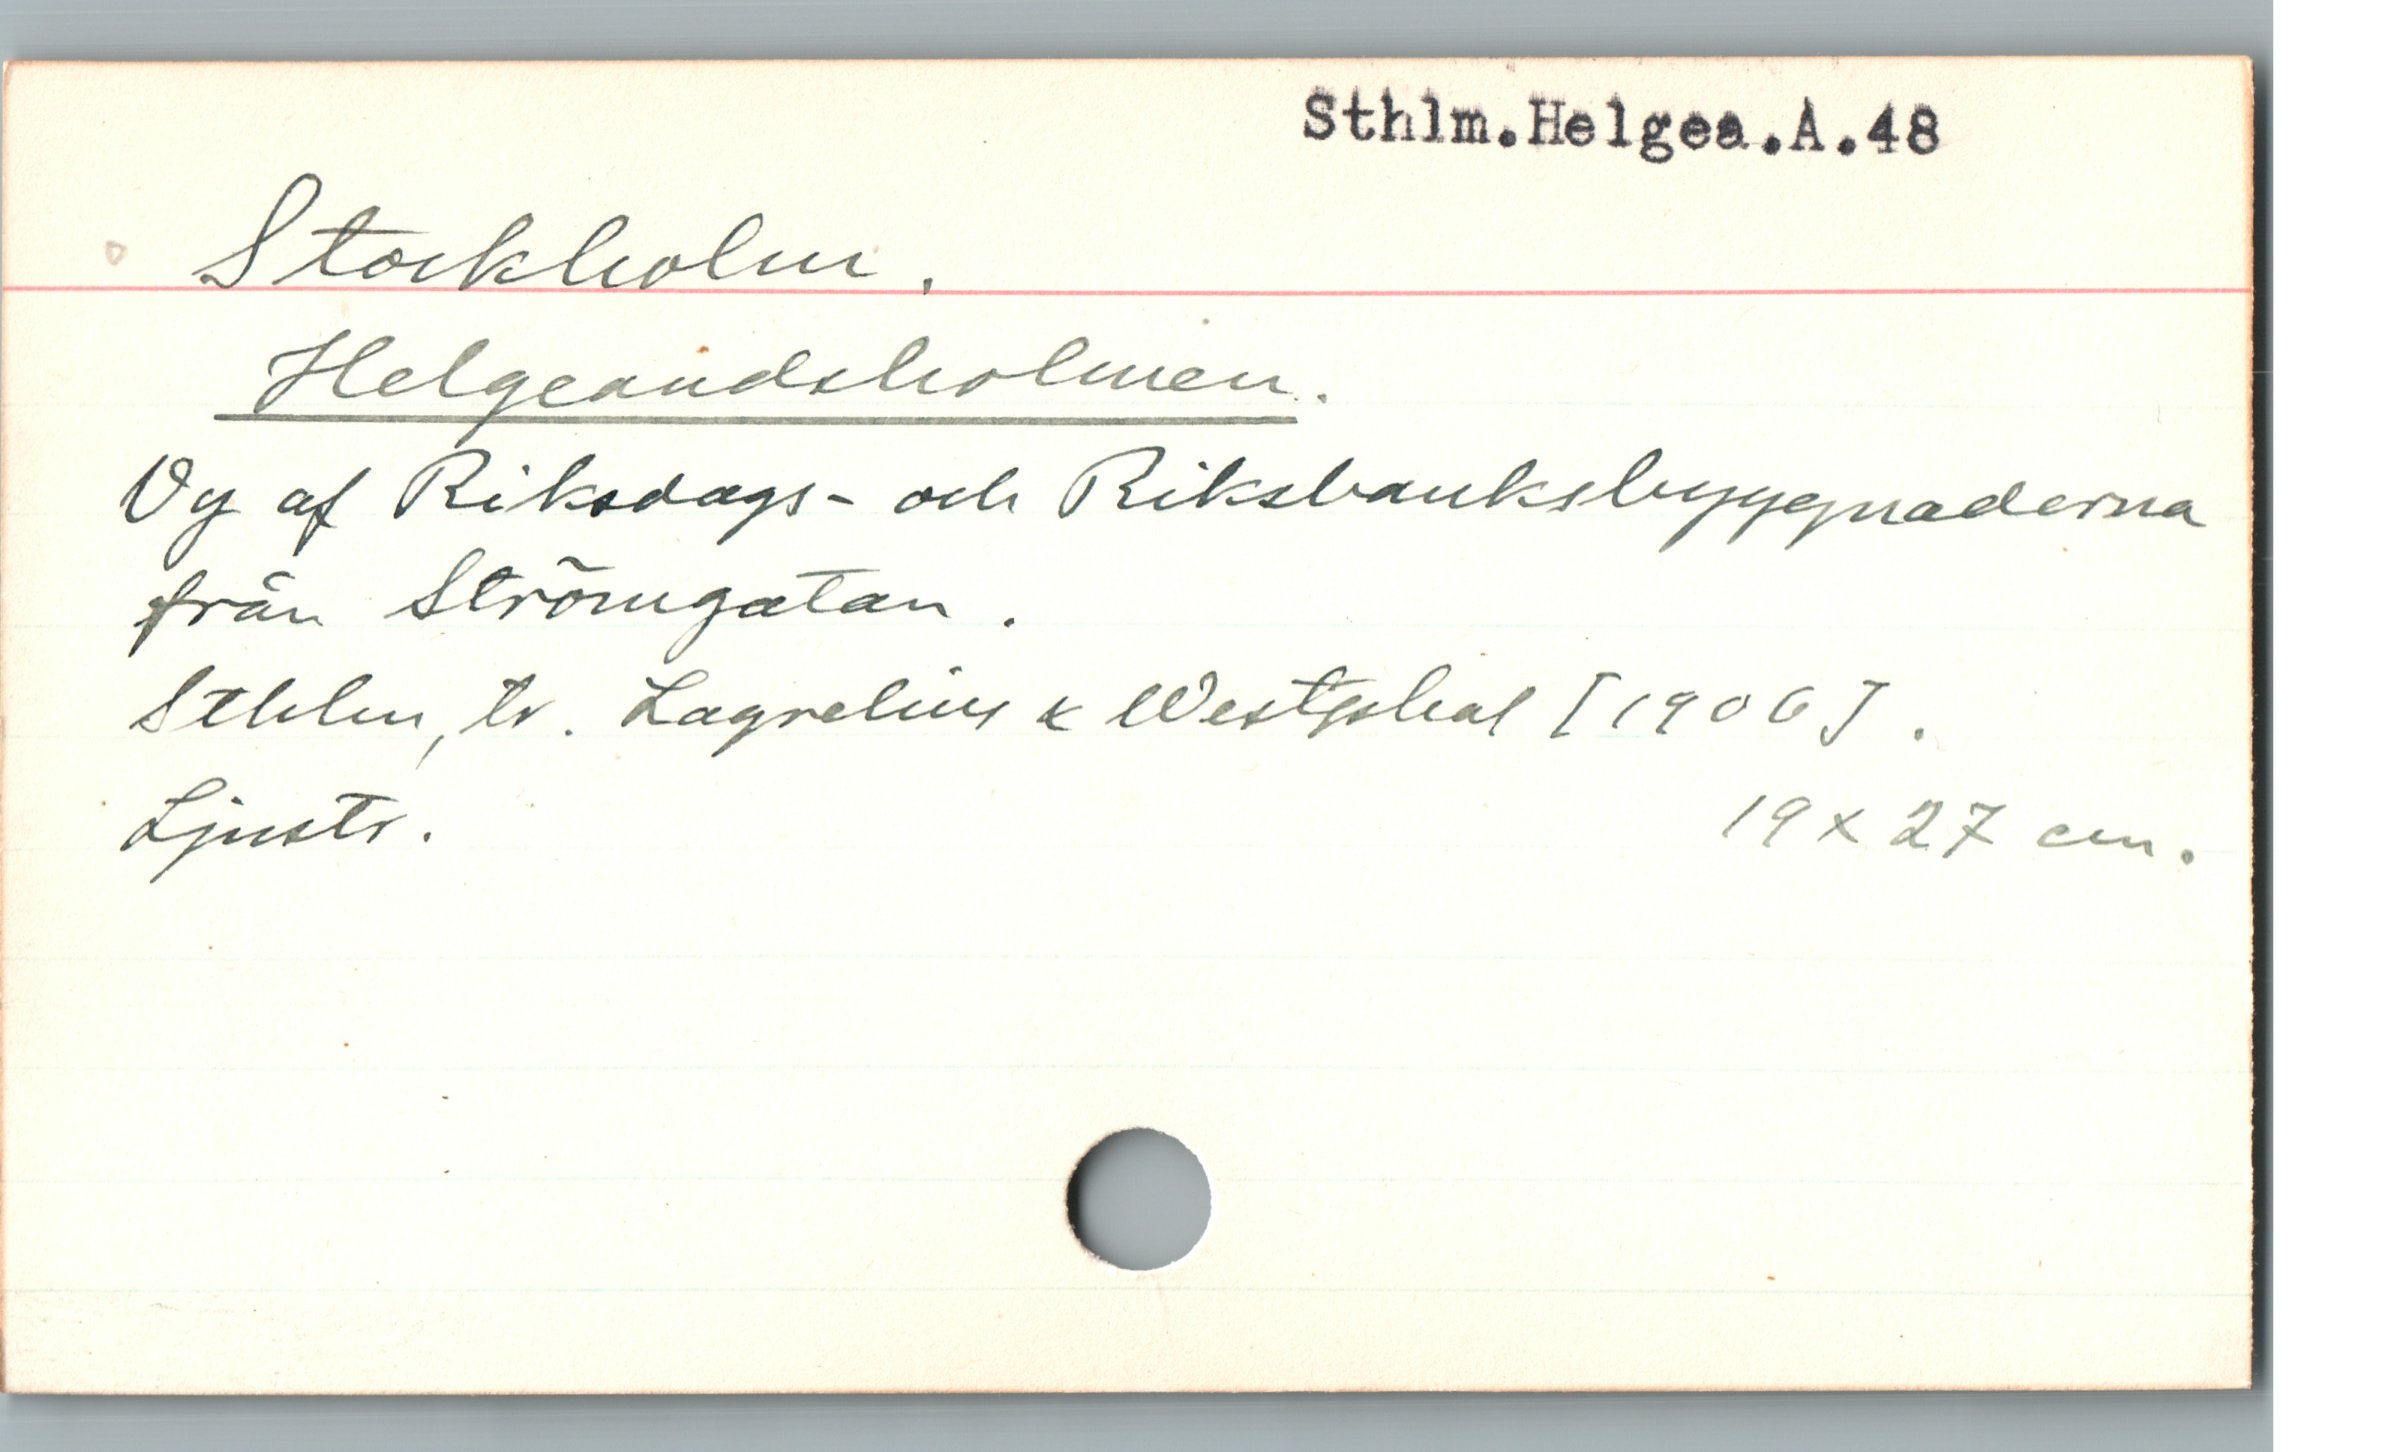 Sthlm.Helgea.A.48
Stockholm.
Helgeandsholmen.
Vy af Riksdags- och Riksbanksbyggnaderna
från Strömgatan.
Sthlm, tr. Lagrelius & Westphal [1906].
Ljustr. 19 x 27 cm.